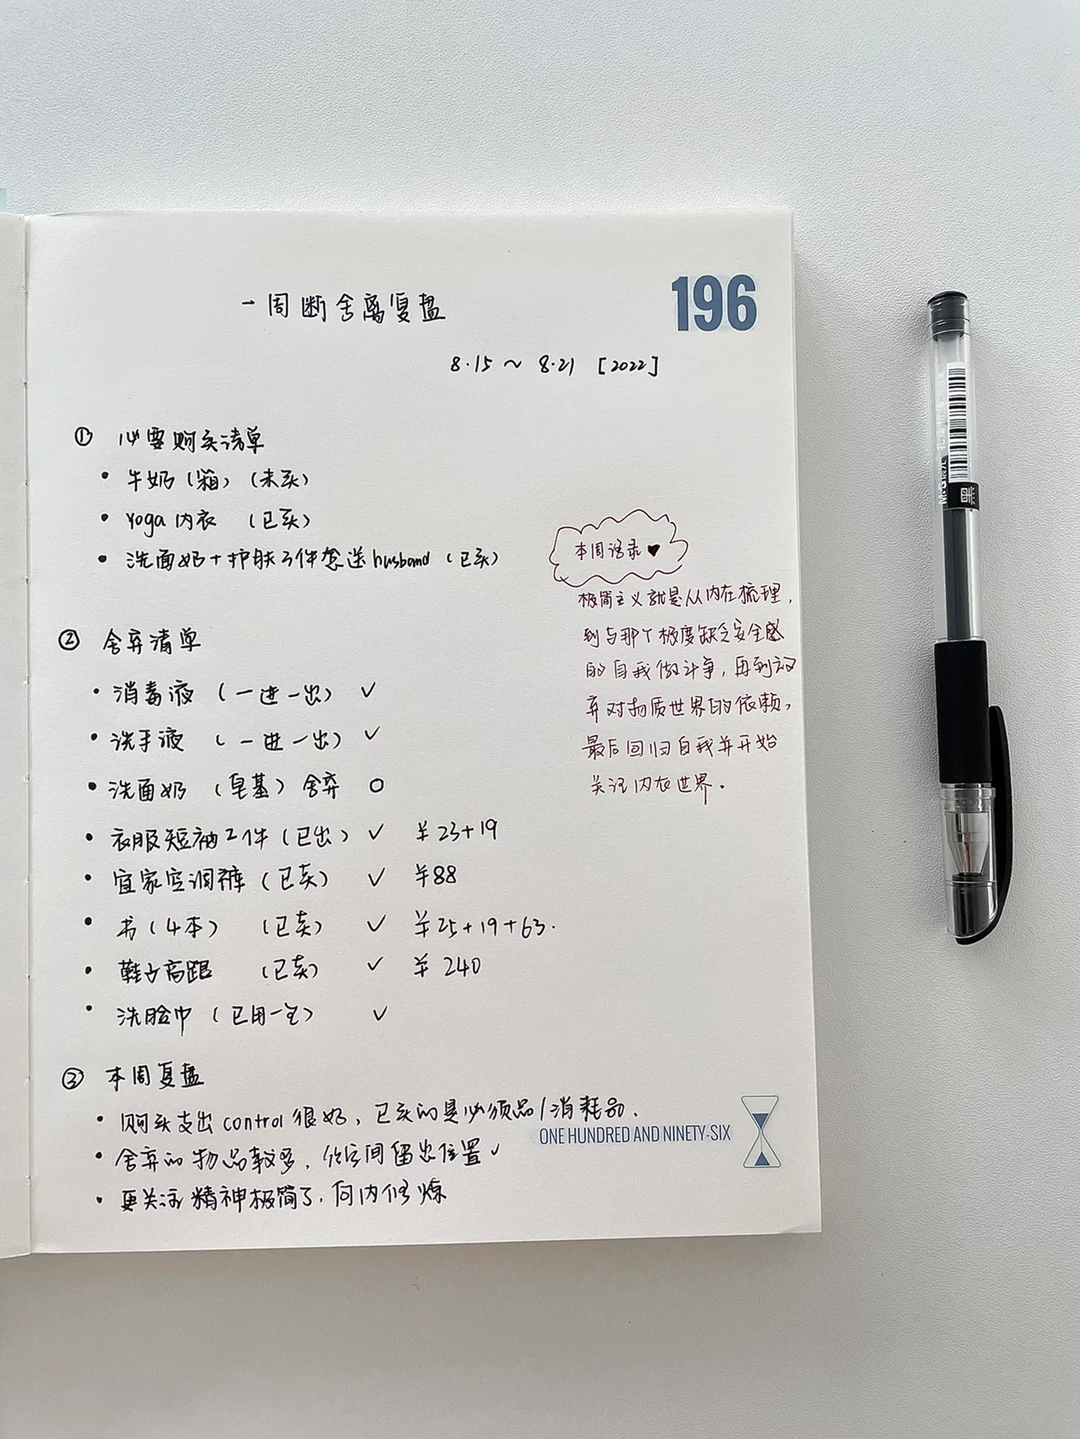 一周断舍离复盘
196
8.15 ~ 8.21 [2022]
① 必要购买清单
• 牛奶（箱）（未买）
• Yoga内衣 （已买）
• 洗面奶+护肤3件套送husband（已买）
本周语录♥
极简主义就是从内在梳理，
到与那个极度缺乏安全感
的自我做斗争，再到放
弃对物质世界的依赖，
最后回归自我并开始
关注内在世界。
② 舍弃清单
• 消毒液（一进一出） ✓
• 洗手液（一进一出） ✓
• 洗面奶（皂基）舍弃 O
• 衣服短袖2件（已出） ✓ ¥23+19
• 宜家空洞裤（已卖） ✓ ¥88
• 书（4本） （已卖） ✓ ¥25+19+63.
• 鞋子高跟 （已卖） ✓ ¥240
• 洗脸巾（已用一包） ✓
③ 本周复盘
• 购买支出control很好，已买的是必须品/消耗品.
• 舍弃的物品较多，给空间留出位置✓
• 更关注精神极简了，向内修炼
ONE HUNDRED AND NINETY-SIX
M&G晨光